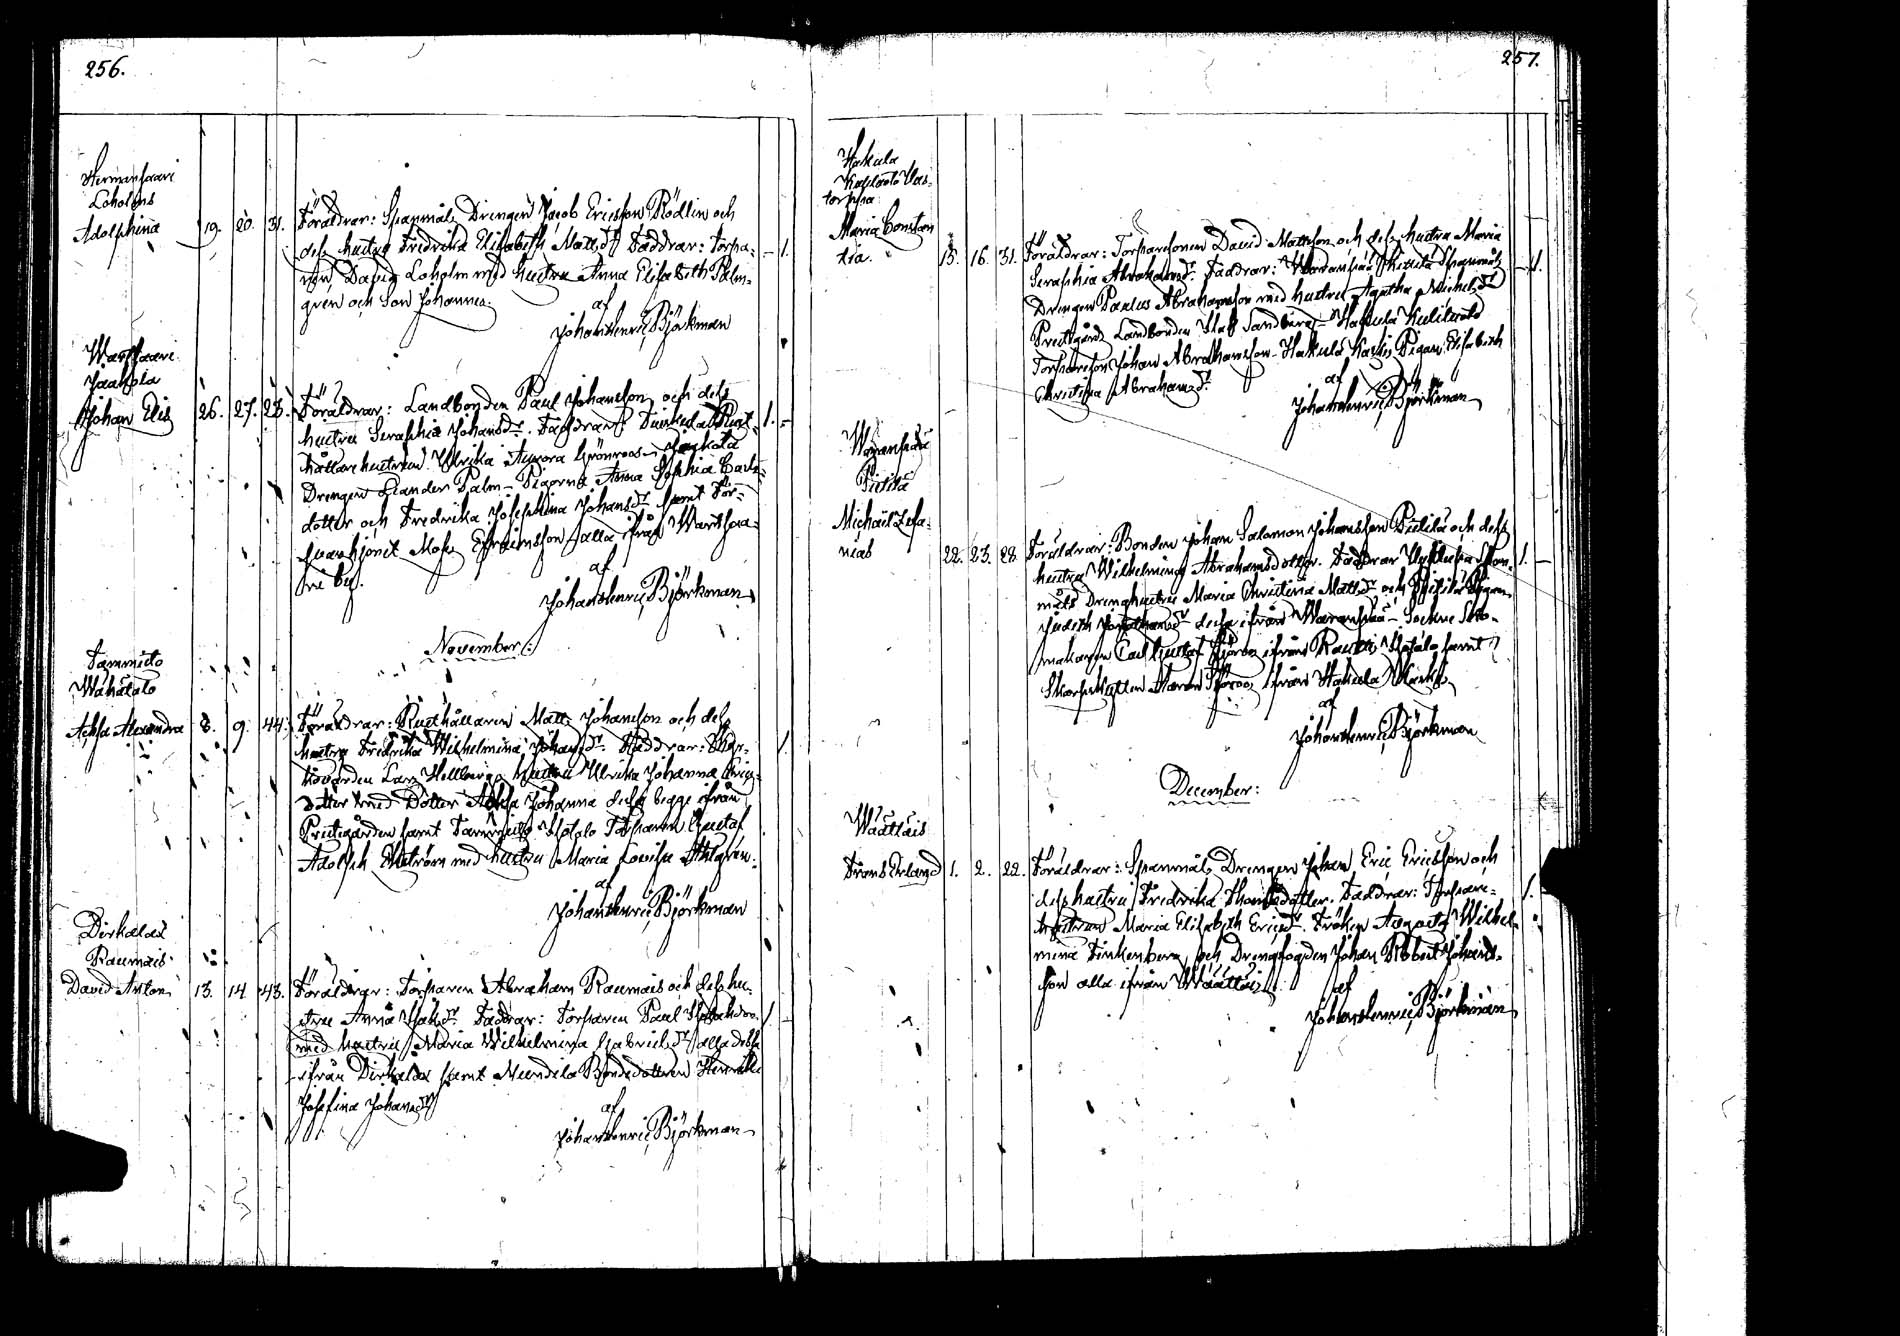 256.
Hermansaari
Loholms
Adolphina 19. 20. 31. Föräldrar: Spanmåls Drengen Jacob Ericsson Rödlin och
dess hustru Fredrika Elisabeth Matts Dr Faddrar: Torpa-
ren David Loholm med hustru Anna Elisabeth Palm-
gren och Son Johannes. — 1.
af
Johan Henric Björkman
Wartsaari
Jaakola
Johan Elis 26. 27. 23. Föräldrar: Landbonden Paul Johansson och dess
hustru Seraphia Johans Dr. Faddrar: Rust- 1. –
hållare hustrun Ulrika Aurora Grönroos – Jaakola
Drengen Leander Palm – Pigorna Anna Sophia Carls-
dotter och Fredrika Josephina Johans Dr samt För-
svarshjonet Moses Efraimsson alla ifrån Wartsaa-
ri by.
af
Johan Henric Björkman
November:
Tammisto
Wähätalo
Alexandra 8. 9. 44. Föräldrar: Rusthållaren Matts Johansson och dess
hustru Fredrika Wilhelmina Johans Dr. Faddrar: 1.
Lars Hellbergs hustru Ulrika Johanna Erics-
dotter med Dotter Johanna dessa begge ifrån
Prestgården samt Tammisto Torparen Gustaf
Adolph Ekström med hustru Maria Lovisa Ahlgren.
af
Johan Henric Björkman
Dirkalax
Raumais
David Anton 13. 14. 43. Föräldrar: Torparen Abraham Raumais och dess hu-
stru Anna Dr. Faddrar: Torparen Paul 1. –
med hustru Maria Wilhelmina Gabriels Dr alla dessa
ifrån Dirkalax samt Mundila Bondedottren
Josefina Johans Dr
af
Johan Henric Björkman
257.
Hakula
torppa
Maria Constan
tia. 15. 16. 31. Föräldrar: Torparesonen David Mattsson och dess hustru Maria
Seraphia Abrahams Dr. Faddrar: Waranpää Spanmåls — 1.
Drengen Paulus Abrahamsson med hustru Agatha Michels Dr
Prestgårds Landbonden Sandberg – Hakula
Torpareson Johan Abrahamsson – Hakula Pigan Elisabeth
Christina Abrahams Dr.
af
Johan Henric Björkman
Waranpää
Pietilä
Michail Zefa-
nias 22. 23. 28. Föräldrar: Bonden Johan Salomon Johansson Pietilä och dess
hustru Wilhelmina Abrahamsdotter. Faddrar Span- 1. –
måls Drenghustru Maria Christina Matts Dr och Pietilä Pigan
Judith dessa ifrån Waranpää – Sockne Sko-
makaren Carl Gustaf ifrån samt
ifrån Hakula
af
Johan Henric Björkman
December:
Wäätläis
Frans Erland 1. 2. 22. Föräldrar: Spanmåls Drengen Johan Eric Ericsson och
dess hustru Fredrika Thomasdotter. Faddrar: Torpare- 1.
hustrun Maria Elisabeth Erics Dr. Fröken Augusta Wilhel-
mina Finkenberg och Drengfogden Johan Robert Johans-
son alla ifrån Wäätläis
af
Johan Henric Björkman